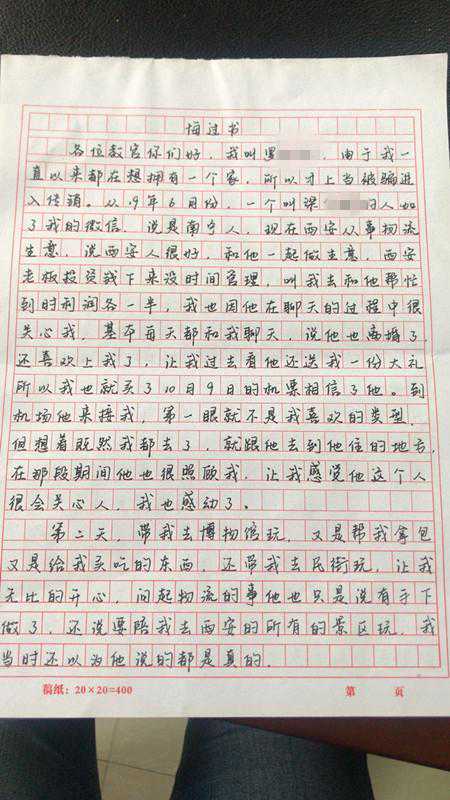 悔过书
各位教官你们好，我叫覃，由于我一
直以来都在想拥有一个家，所以才上当被骗进
入传销。从19年6月份，一个叫谭的人加
了我的微信，说是南宁人，现在西安从事物流
生意，说西安人很好，和他一起做生意，西安
老板投资钱下来没时间管理，叫我去和他帮忙
到时利润各一半，我也因他在聊天的过程中很
关心我，基本每天都和我聊天，说他也离婚了，
还喜欢上我了，让我过去看他还送我一份大礼
所以我也就买了10月9日的机票相信了他。到
机场他来接我，第一眼就不是我喜欢的类型，
但想着既然我都去了，就跟他去到他住的地方，
在那段期间他也很照顾我，让我感觉他这个人
很会关心人，我也感动了。
第二天，带我去博物馆玩，又是帮我拿包
又是给我买吃的东西，还带我去民街玩，让我
无比的开心，问起物流的事他也只是说有手下
做了，还说要陪我去西安的所有的景区玩，我
当时还以为他说的都是真的.
稿纸：20×20=400
第 页